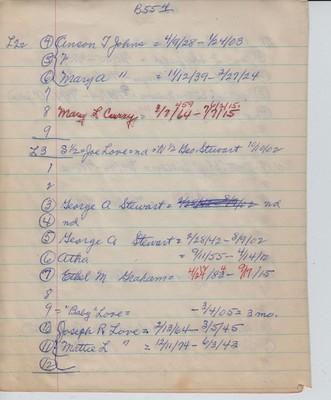 B551
L22 (4) Anson T Johns = 4/9/28 - 1/24/03
(5) "
(6) Mary A " = 11/12/39 - 2/27/24
7
8 Mary L Curry = 3/7/64 - 7/7/15
9
L3 3½ = Joe Love = nd = N½ Geo. Stewart 11/10/02
1
2
(3) George A Stewart = nd
(4) nd
(5) George A Stewart = 2/28/42 - 8/9/02
(6) Atha = 9/11/55 - 4/14/10
(7) Ethel M Graham = /15
8
9 = "Baby" Love = - 3/4/05 = 3 mo.
(10) Joseph R Love = 2/13/64 - 3/5/45
(11) Mattie L " = 12/11/74 - 6/3/43
(12)